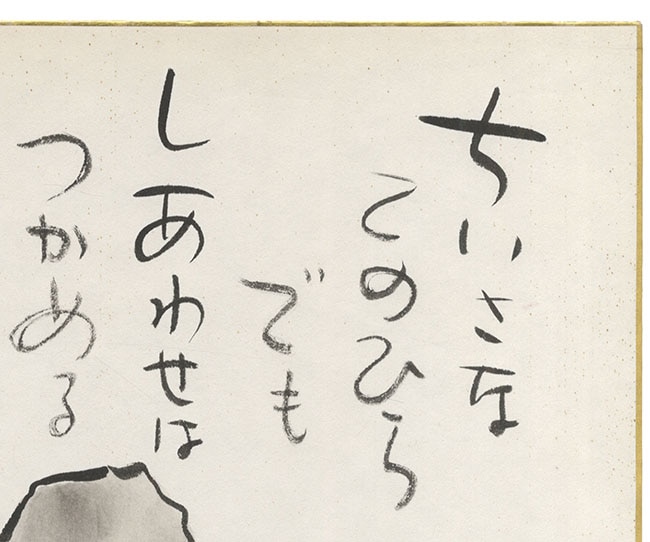 ちいさな
このひら
でも
しあわせは
つかめる